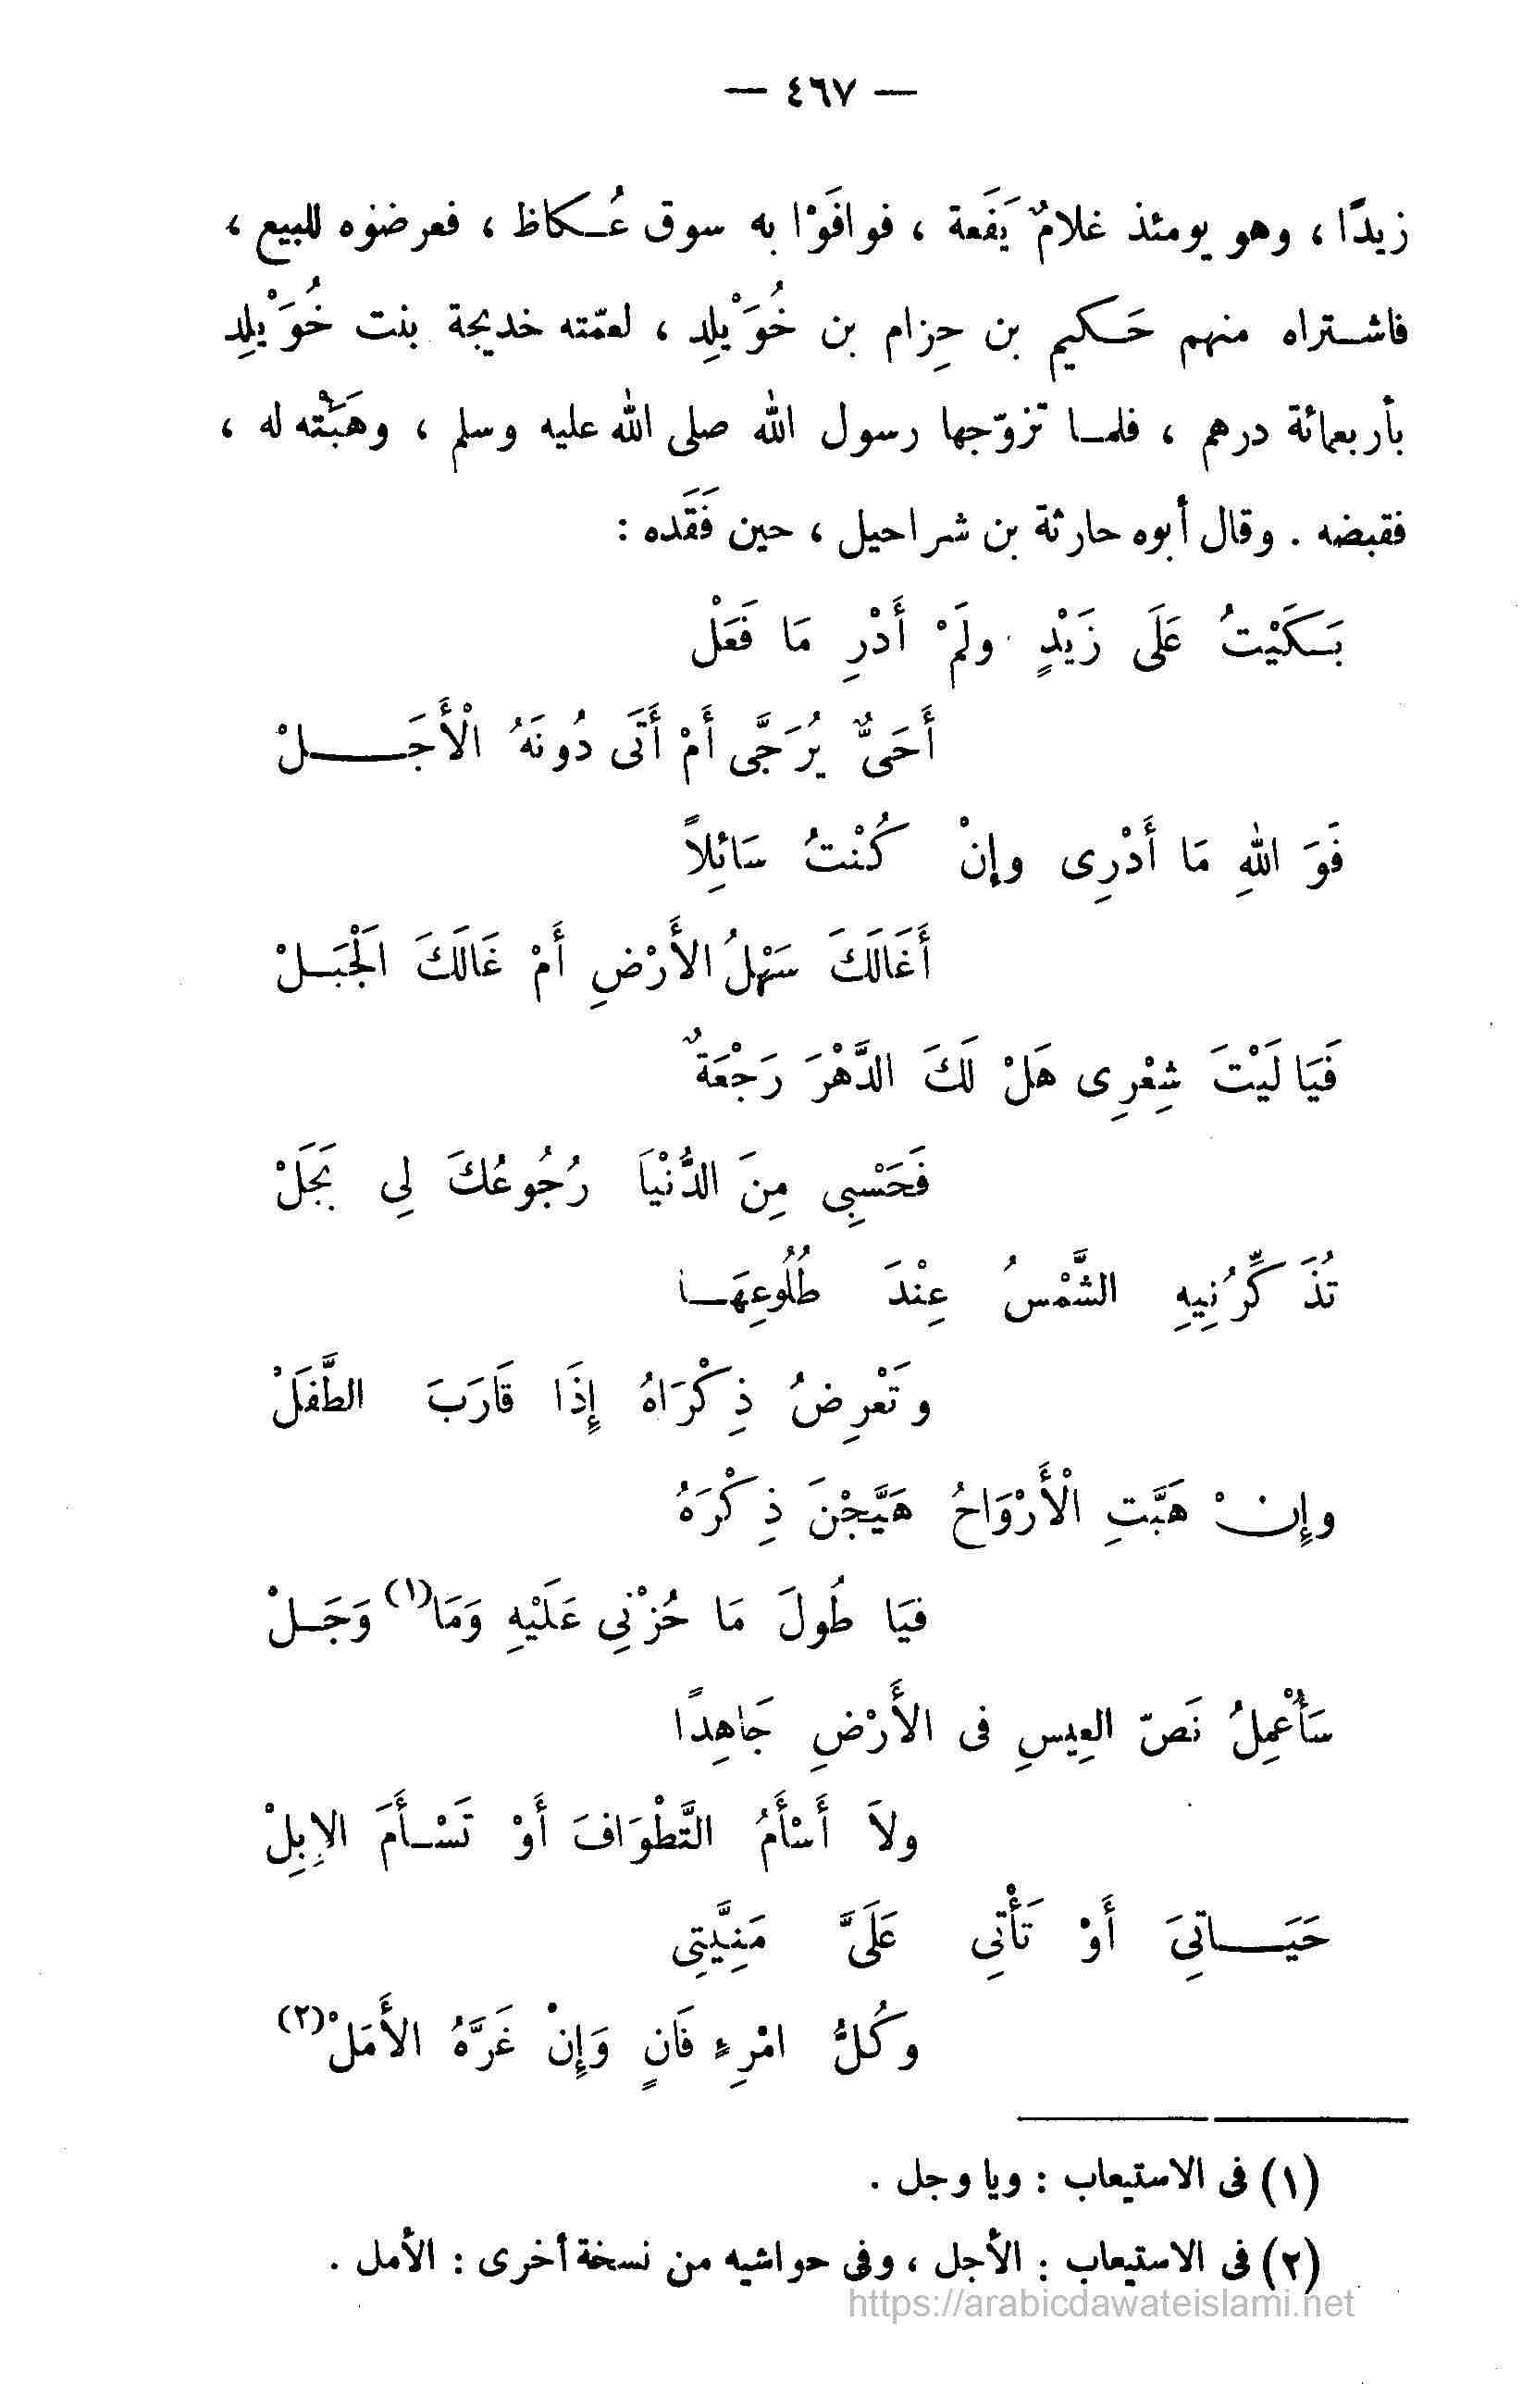 — ٤٦٧ —
زيدًا ، وهو يومئذ غلامٌ يَفَعة ، فوافَوْا به سوق عُكاظ ، فعرضوه للبيع ،
فاشتراه منهم حَكيم بن حِزام بن خُوَيْلِد ، لعمّته خديجة بنت خُوَيْلِد
بأربعمائة درهم ، فلما تزوّجها رسول الله صلى الله عليه وسلم ، وهَبَتْه له ،
فقبضه . وقال أبوه حارثة بن شراحيل ، حين فَقَده :
بَكَيْتُ عَلَى زَيْدٍ ولَمْ أَدْرِ مَا فَعَلْ
أَحَىٌّ يُرَجَّى أَمْ أَتَى دُونَهُ الْأَجَلْ
فَوَ اللهِ مَا أَدْرِى وإِنْ كُنْتُ سَائِلاً
أَغَالَكَ سَهْلُ الأَرْضِ أَمْ غَالَكَ الَجْبَلْ
فَيَالَيْتَ شِعْرِى هَلْ لَكَ الدَّهْرَ رَجْعَةٌ
فَحَسْبِى مِنَ الدُّنْيَا رُجُوعُكَ لِى بَجَلْ
تُذَكِّرُنِيهِ الشَّمْسُ عِنْدَ طُلُوعِهَا
وتَعْرِضُ ذِكْرَاهُ إِذَا قَارَبَ الطَّفَلْ
وإِنْ هَبَّتِ الْأَرْوَاحُ هَيَّجْنَ ذِكْرَهُ
فيَا طُولَ مَا حُزْنِى عَلَيْهِ وَمَا(١) وَجَلْ
سَأُعْمِلُ نَصّ العِيسِ فى الأَرْضِ جَاهِدًا
ولاَ أَسْأَمُ التَّطْوَافَ أَوْ تَسْأَمَ الإِبِلْ
حَيَاتِىَ أَوْ تَأْتِى عَلَىَّ مَنِيَّتِى
وكُلُّ امْرِءٍ فَانٍ وَإِنْ غَرَّهُ الأَمَلْ(٢)
(١) فى الاستيعاب : ويا وجل .
(٢) فى الاستيعاب : الأجل ، وفى حواشيه من نسخة أخرى : الأمل .
https://arabicdawateislami.net